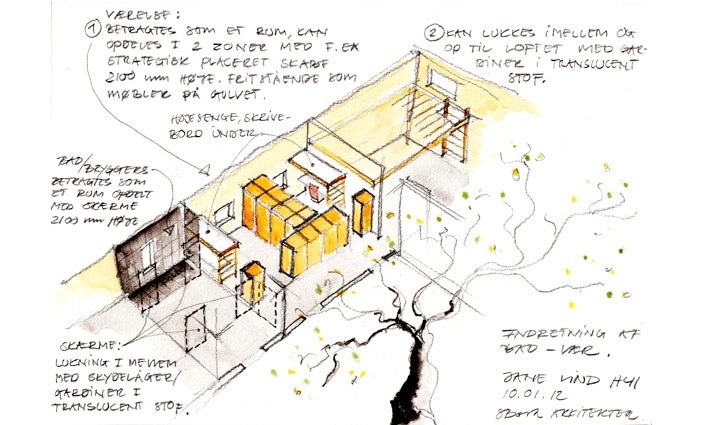 VÆRELSE:
① BETRAGTES SOM ET RUM, KAN
OPDELES I 2 ZONER MED F.EX
STRATEGISK PLACERET SKABE
2100 mm HØJE. FRITSTÅENDE SOM
MØBLER PÅ GULVET.
② KAN LUKKES IMELLEM OG
OP TIL LOFTET MED GAR-
DINER I TRANSLUCENT
STOF.
HØJESENGE, SKRIVE-
BORD UNDER
BAD/
BRYGGERS-
BETRAGTES SOM
ET RUM OPDELT
MED SKÆRME
2100 mm HØJE
SKÆRME:
LUKNING I MELLEM
MED SKYDELÅGER/
GARDINER I
TRANSLUCENT STOF.
INDRETNING AF
BAD-VÆR.
JANE LIND
10.01.12
ARKITEKTER